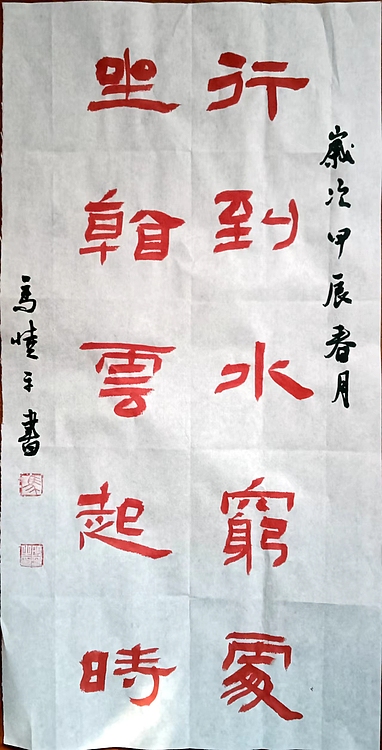 歲次甲辰春月
行到水窮處
坐看雲起時
馬曉平書